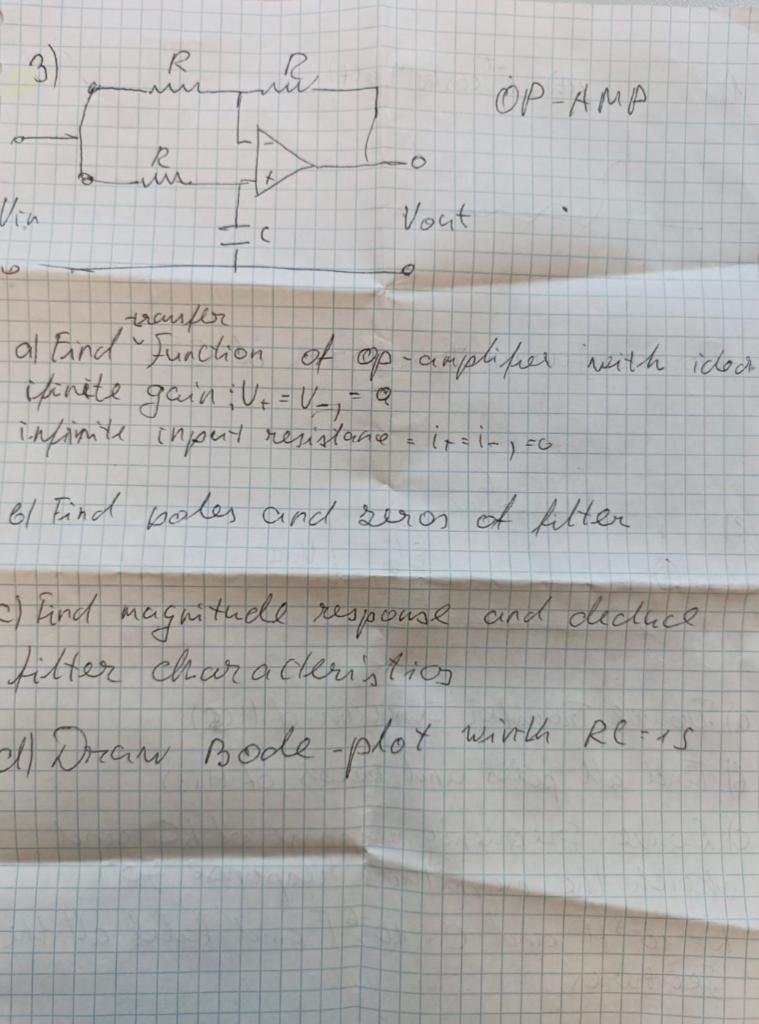 3)
R R
OP-AMP
R
- +
Vin
C
Vout
transfer
a) Find Function of op-amplifier with
ifinite gain; V+ = V-, = 0
infinite input resistane = i+ = i-, =0
b) Find poles and zeros of filter
c) Find magnitude response and deduce
filter characteristics
d) Draw Bode-plot winth RC=1s